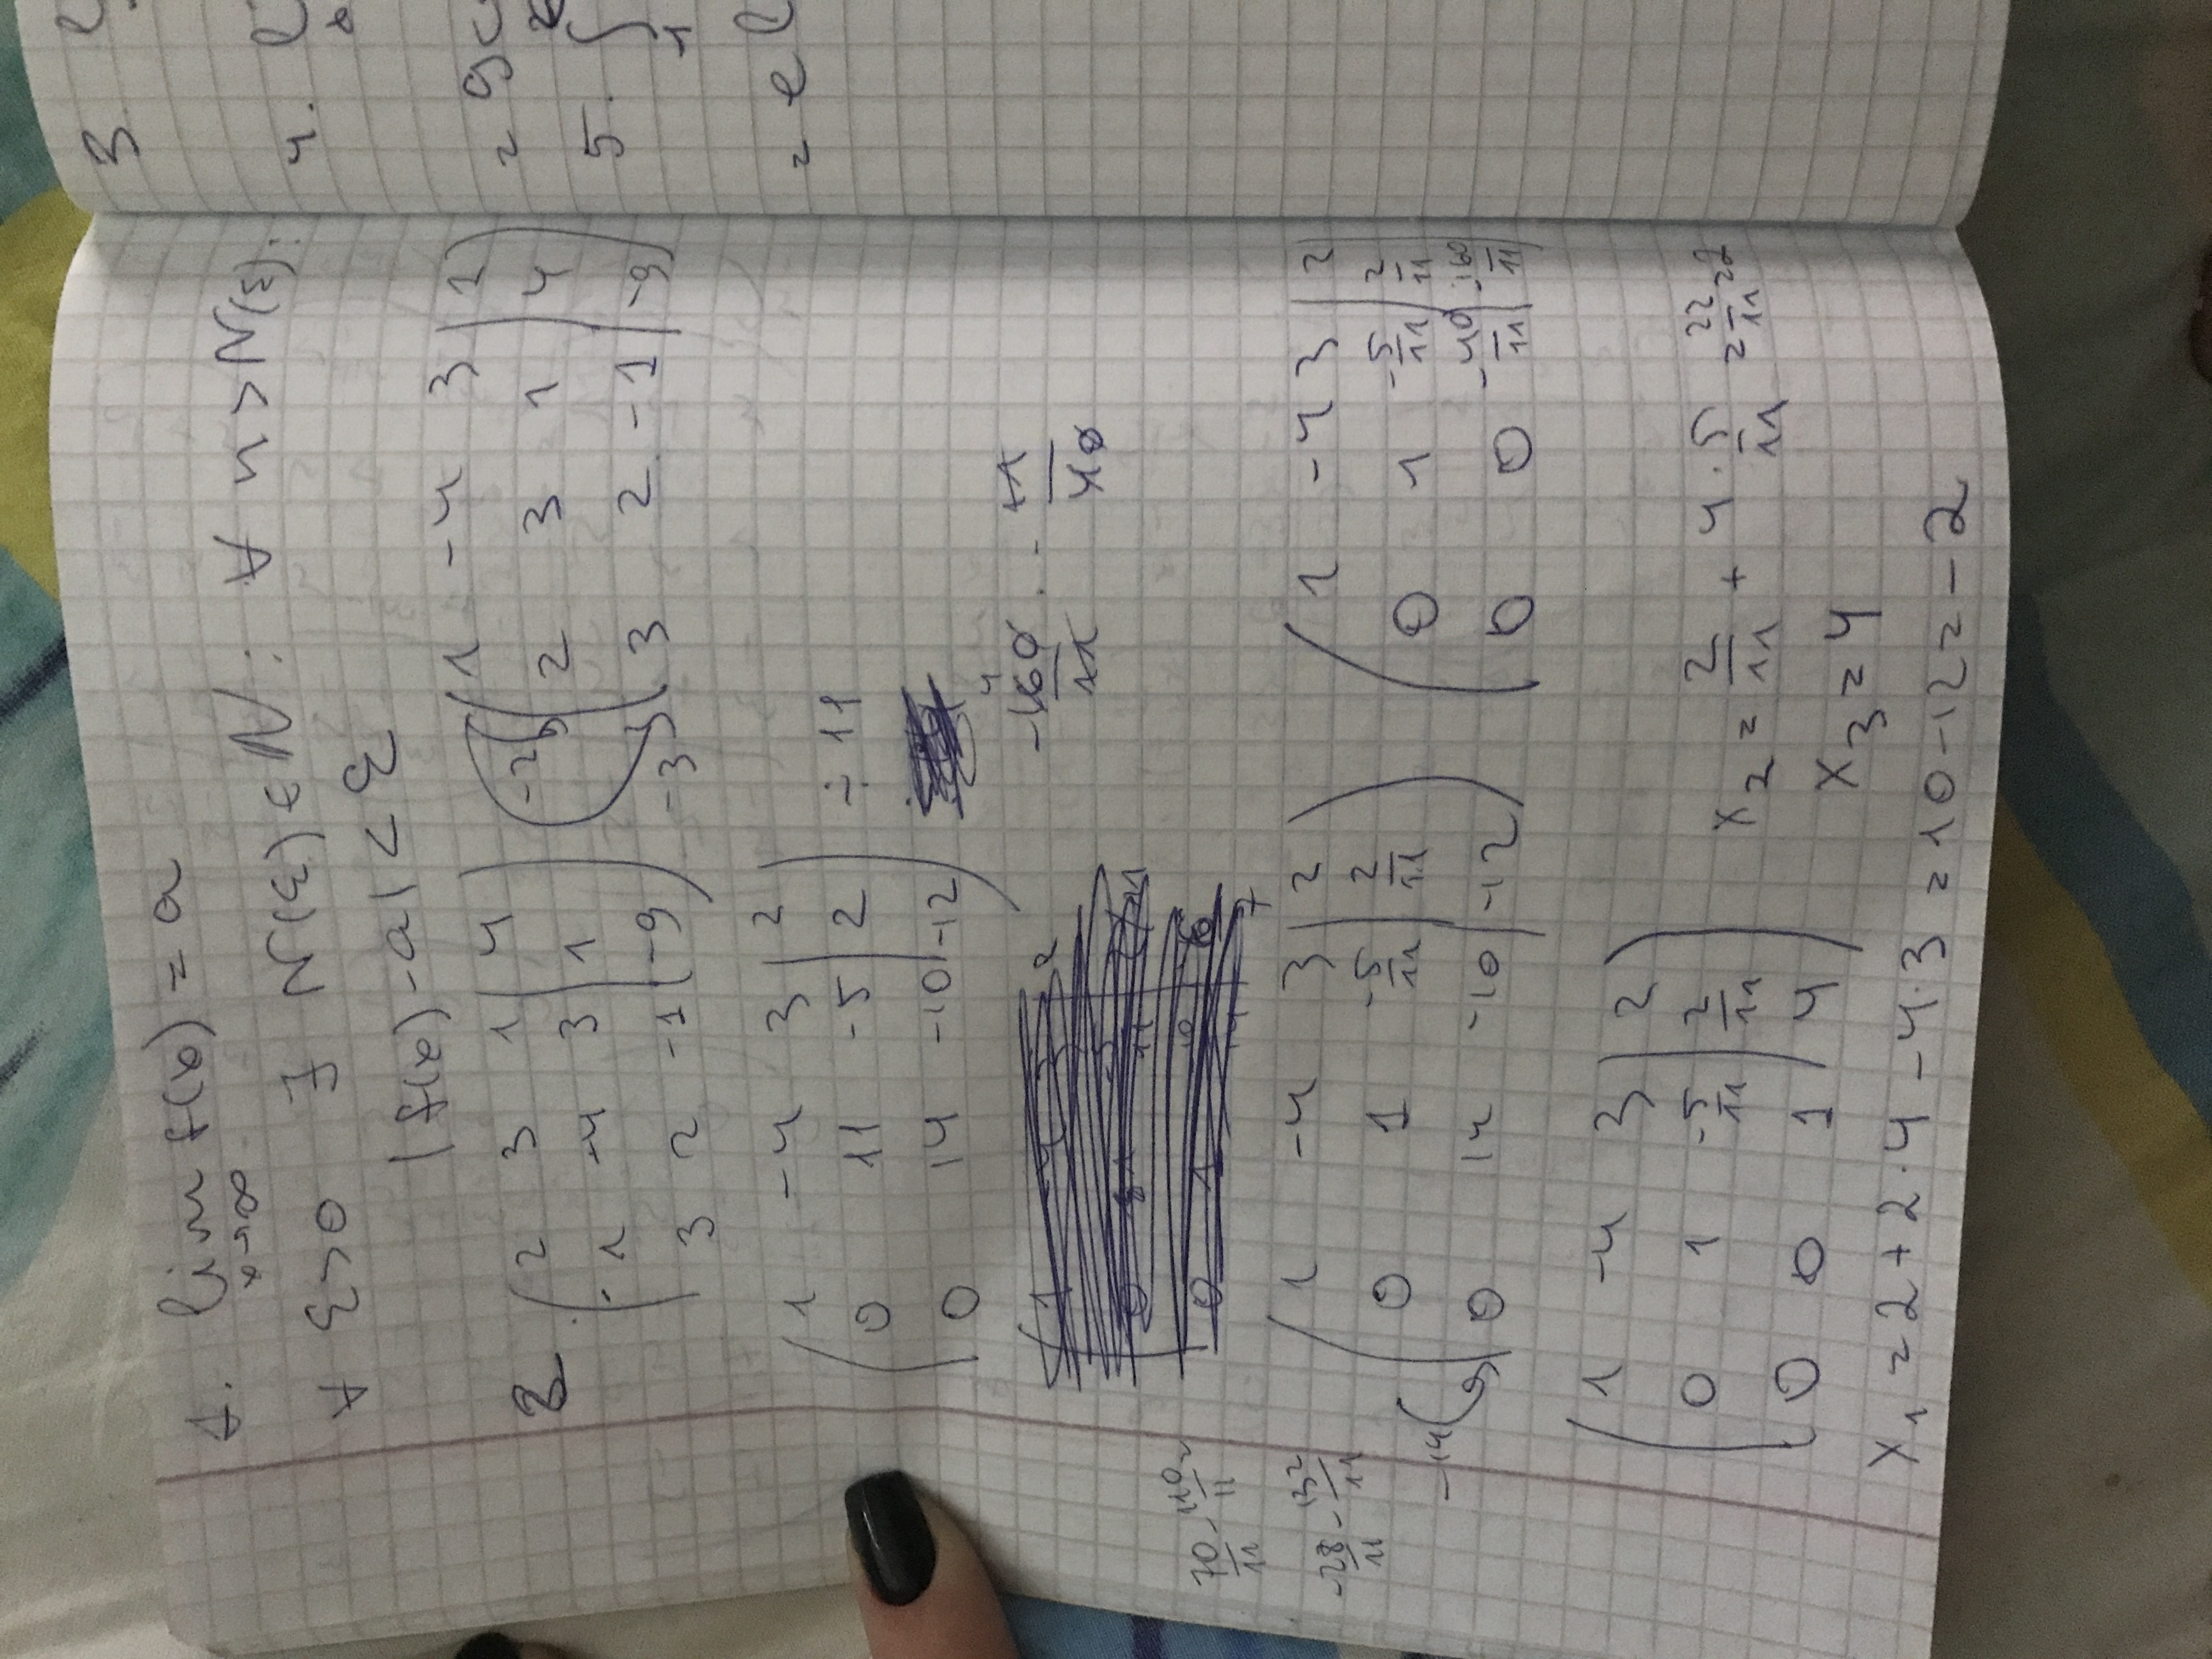 1. lim f(x) = a
x→∞
∀ ε>0 ∃ N(ε)∈N : ∀ n>N(ε):
|f(x)-a| < ε
2 (2 3 1 | 4) (1 -4 3 | 2)
(1 -4 3 | 1) -2 (2 3 1 | 4)
(3 2 -1 | -9) -3 (3 2 -1 | -9)
(1 -4 3 | 2)
(0 11 -5 | 2) ÷ 11
(0 14 -10 | -12)
-160/11 · 11/40
70/11 - 110/11
-28/11 - 132/11
(1 -4 3 | 2) (1 -4 3 | 2)
(0 1 -5/11 | 2/11) (0 1 -5/11 | 2/11)
-14 (0 14 -10 | -12) (0 0 -40/11 | -160/11)
(1 -4 3 | 2)
(0 1 -5/11 | 2/11) x2 = 2/11 + 4·5/11 = 22/11 = 2
(0 0 1 | 4) x3 = 4
x1 = 2+2·4-4·3 = 10-12 = -2
3
4.
=
5. ∫
= e